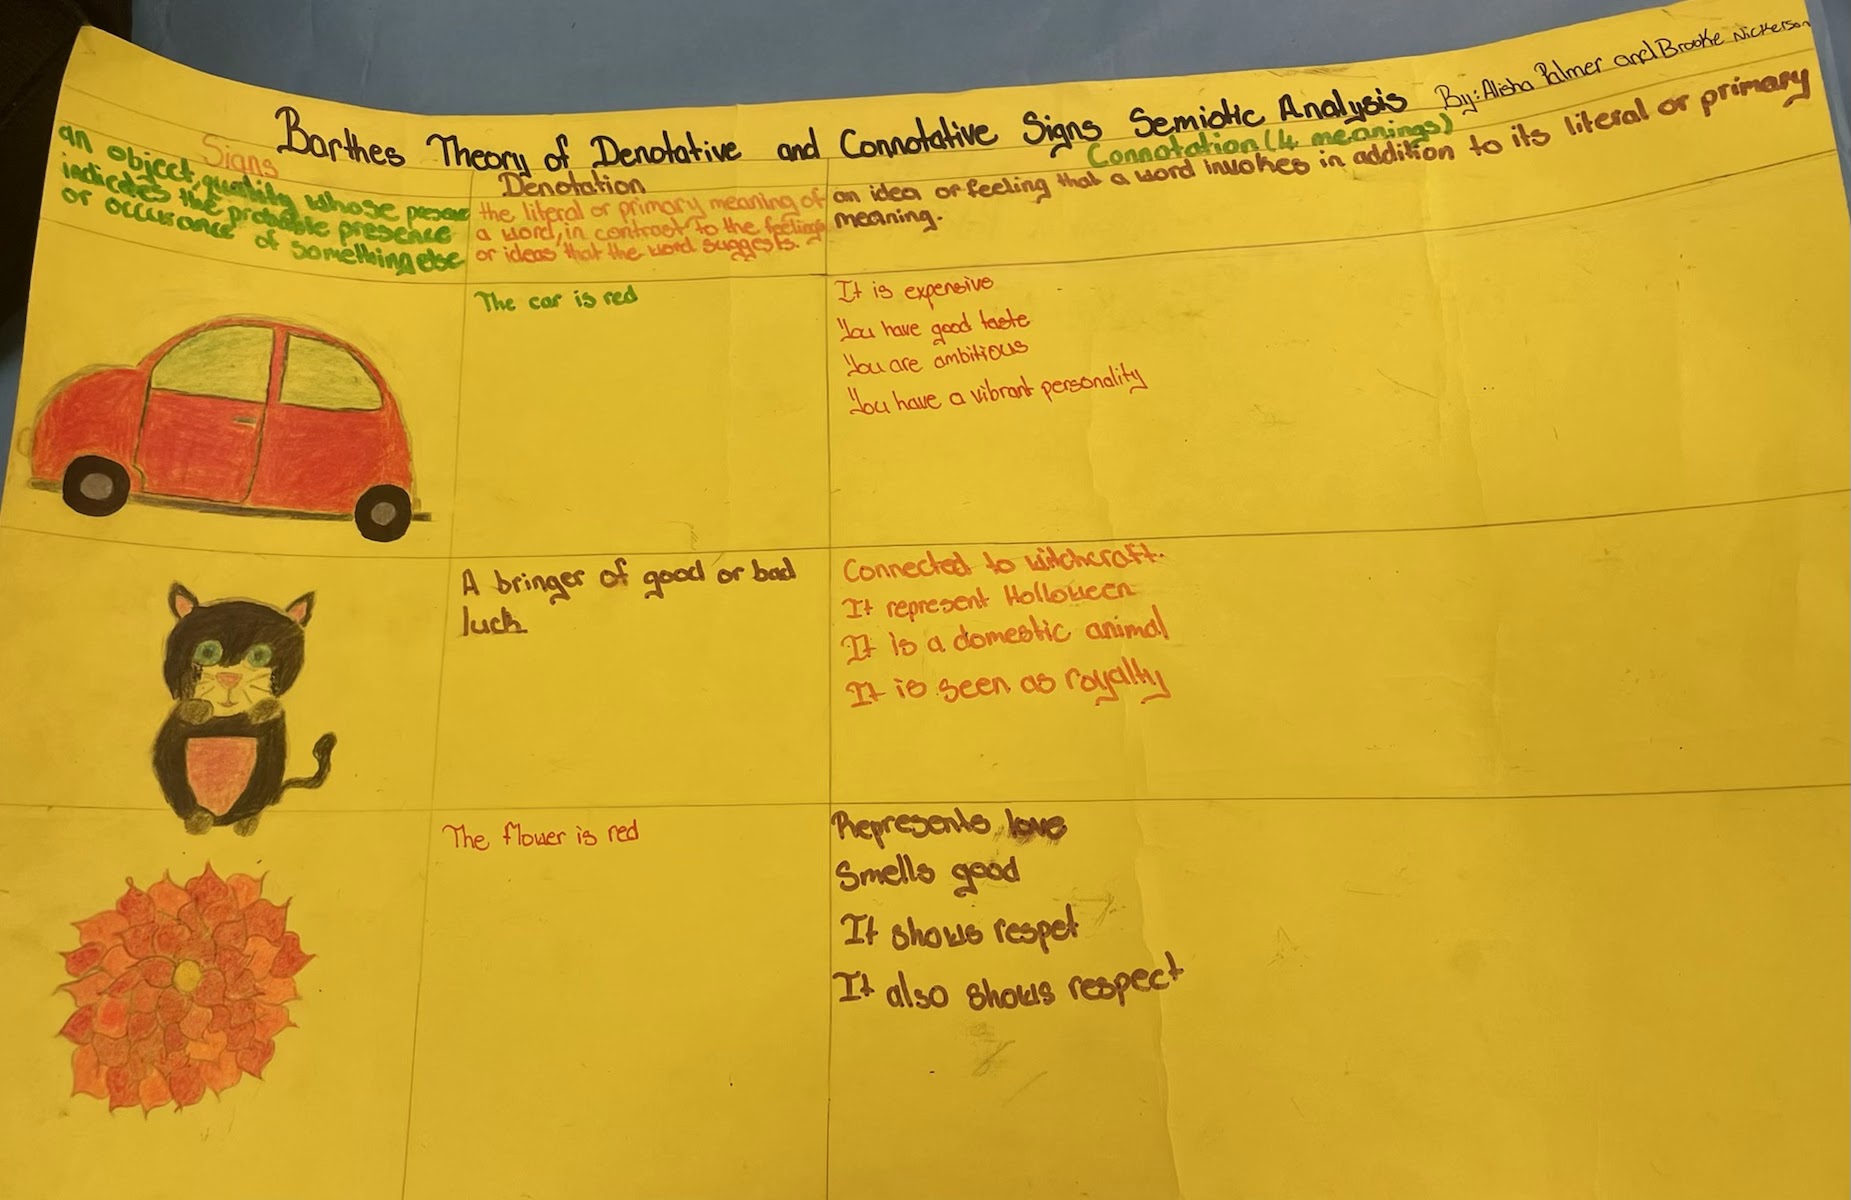 Barthes Theory of Denotative and Connotative Signs Semiotic Analysis
By: Alisha Palmer and Brooke Nickerson
Signs
an object, quality whose presence
indicates the probable presence
or occurance of something else
Denotation
the literal or primary meaning of
a word, in contrast to the feelings
or ideas that the word suggests.
Connotation (4 meanings)
an idea or feeling that a word invokes in addition to its literal or primary
meaning.
The car is red
It is expensive
You have good taste
You are ambitious
You have a vibrant personality
A bringer of good or bad
luck
Connected to witchcraft.
It represent Holloween
It is a domestic animal
It is seen as royalty
The flower is red
Represents love
Smells good
It shows respet
It also shows respect